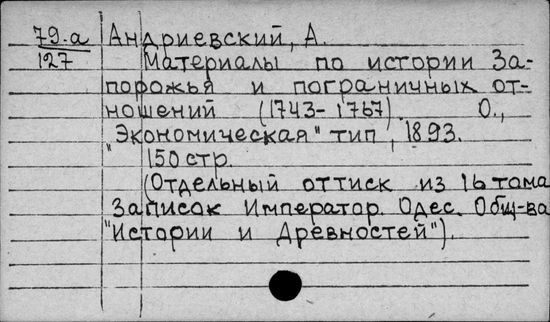 79-а Андриевский, А.
127 Материалы по истории За-
порожья и пограничных от-
ношений (1743-1767). О.,
"Экономическая" тип, 1893.
150 стр.
(Отдельный оттиск из 16 тома
Записок Император. Одес. Общ-ва
"Истории и Древностей").